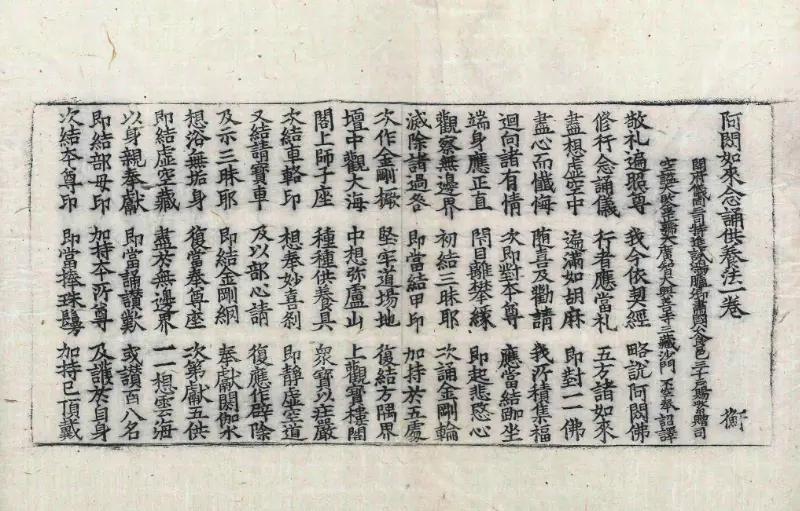 阿閦如來念誦供養法一卷 衡
開府儀同三司特進試鴻臚卿肅國公食邑三千戶賜紫贈司
空謚大鑒正號大廣智大興善寺三藏沙門 不空奉 詔譯
敬礼遍照尊 我今依契經 略說阿閦佛
修行念誦儀 行者應當礼 五方諸如來
盡想虛空中 遍滿如胡麻 即對一一佛
盡心而懺悔 隨喜及勸請 我所積集福
迴向諸有情 次即對本尊 應當結跏坐
端身應正直 閇目離攀緣 即起悲愍心
觀察無邊界 初結三昧耶 次誦金剛輪
滅除諸過咎 即當結甲印 加持於五處
次作金剛橛 堅牢道場地 復結方隅界
壇中觀大海 中想弥盧山 上觀寶樓閣
閣上師子座 種種供養具 衆寶以莊嚴
次結車輅印 想奉妙喜剎 即靜虛空道
又結請寶車 及以部心請 復應作辟除
及示三昧耶 即結金剛網 奉獻閼伽水
想浴無垢身 復當奉尊座 次第獻五供
即結虛空藏 盡於無邊界 一一想雲海
以身親奉獻 即當誦讚歎 或讃百八名
即結部母印 加持本所尊 及護於自身
次結本尊印 即當捧珠鬘 加持已頂戴